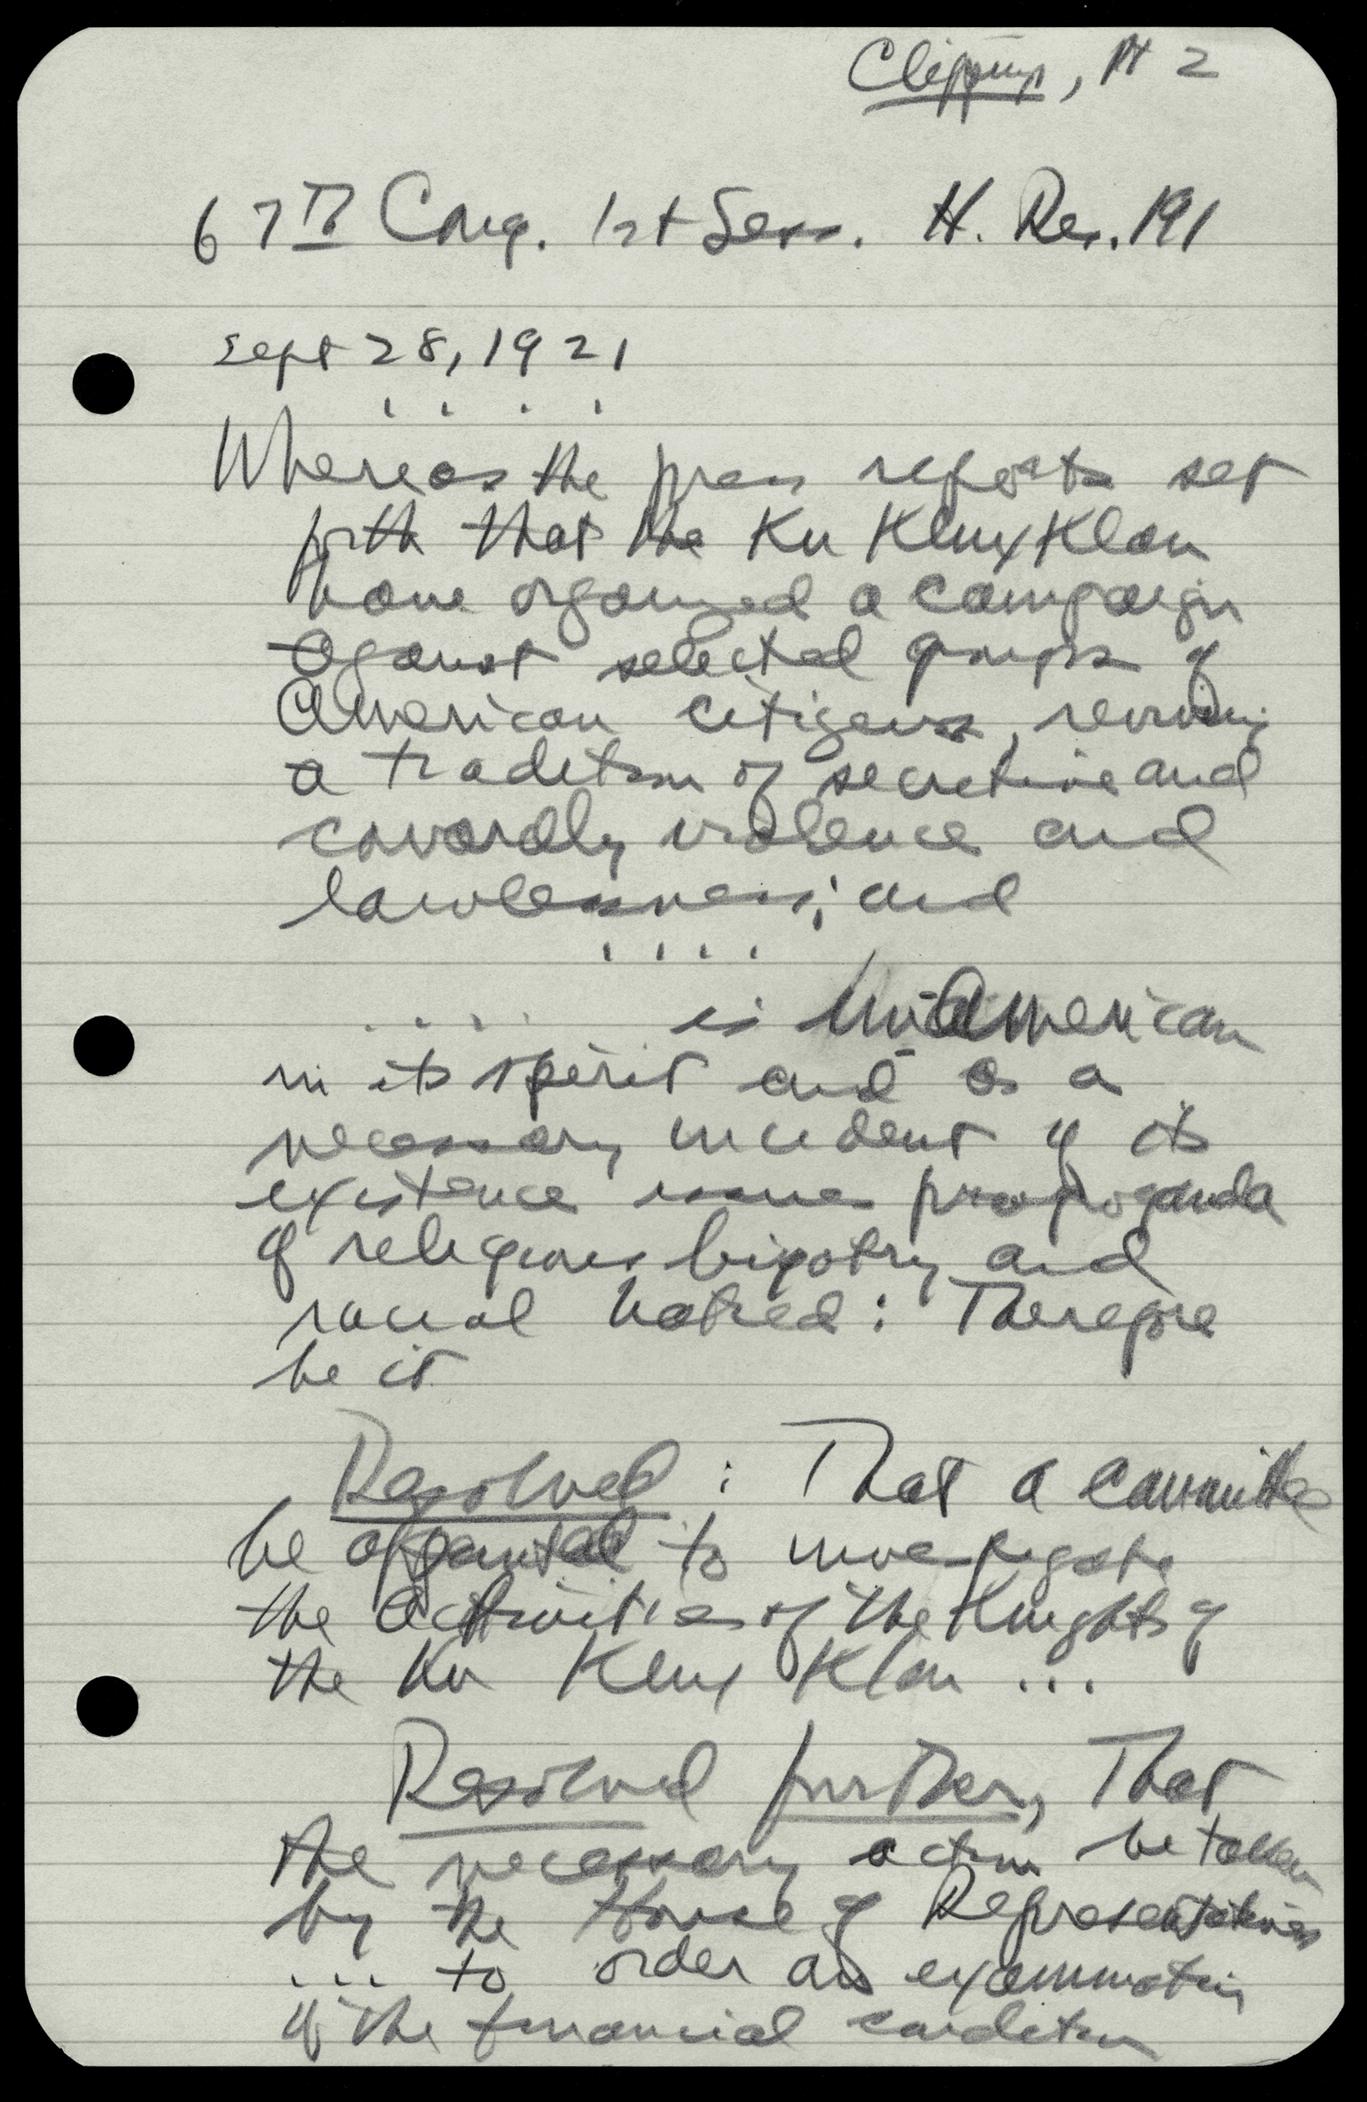 Clippings, Pt 2
67th Cong. 1st Sess. H. Res. 191
Sept 28, 1921
. . . .
Whereas the press reports set
forth that the Ku Klux Klan
have organized a campaign
against selected groups of
American citizens, reviving
a tradition of secretive and
cowardly violence and
lawlessness; and
. . . .
. . . . is Un-American
in its spirit and as a
necessary incident of its
existence issues propaganda
of religious bigotry and
racial hatred: Therefore
be it
Resolved: That a committee
be organized to investigate
the activities of the Knights of
the Ku Klux Klan ...
Resolved further, That
the necessary action be taken
by the House of Representatives
... to order an examination
of the financial condition